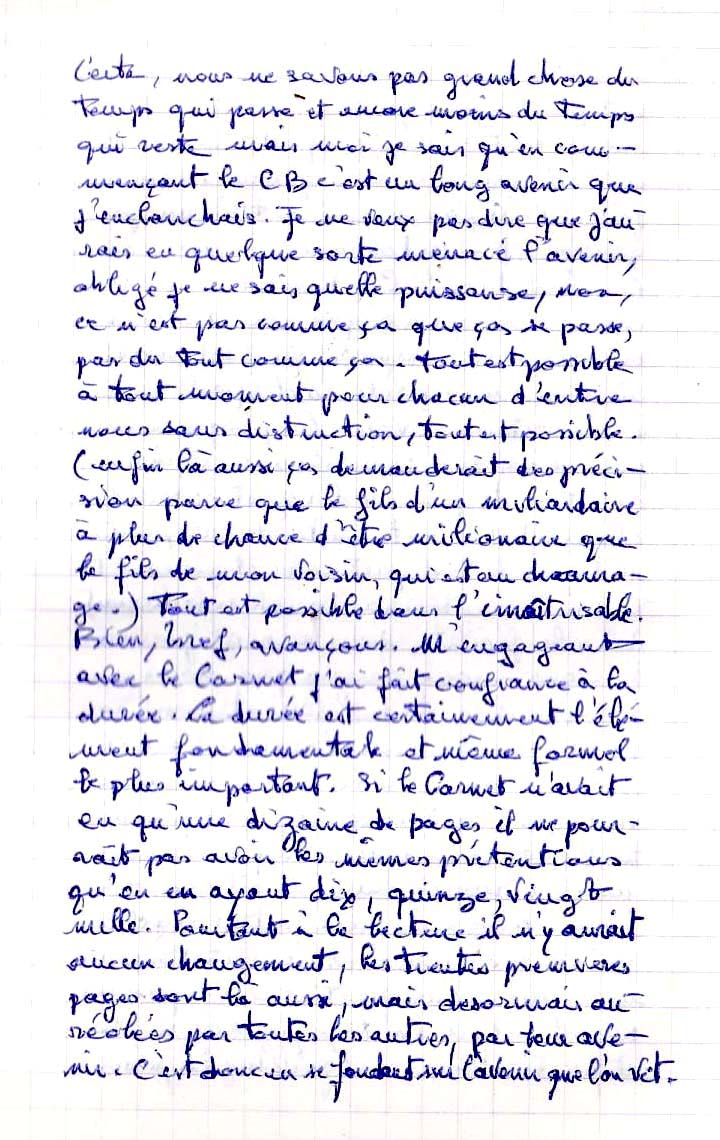 Certe, nous ne savons pas grand chose du
temps qui passe et encore moins du temps
qui reste mais moi je sais qu'en com-
mençant le CB c'est un long avenir que
j'enclanchais. Je ne veux pas dire que j'au-
rais en quelque sorte menacé l'avenir,
obligé je ne sais quelle puissanse, non,
ce n'est pas comme ça que ças se passe,
pas du tout comme ça. tout est possible
à tout moment pour chacun d'entre
nous sans distinction, tout est possible.
(enfin là aussi ças demanderait des préci-
sion parce que le fils d'un miliardaire
à plus de chance d'être milionaire que
le fils de mon voisin, qui est au chaauma-
ge.) Tout est possible dans l'imaîtrisable.
Bien, bref, avançons. M'engageant
avec le Carnet j'ai fait confiance à la
durée. La durée est certainement l'élé-
ment fondamentale et même formel
le plus important. Si le Carnet n'avait
eu qu'une dizaine de pages il ne pour-
rait pas avoir les mêmes prétentions
qu'en en ayant dix, quinze, vingt
mille. Pourtant à la lecture il n'y aurait
aucun changement, les trentes premières
pages sont là aussi, mais desormais au-
réolées par toutes les autres, par leur ave-
nir. C'est donc en se fondant sur l'avenir que l'on vit.